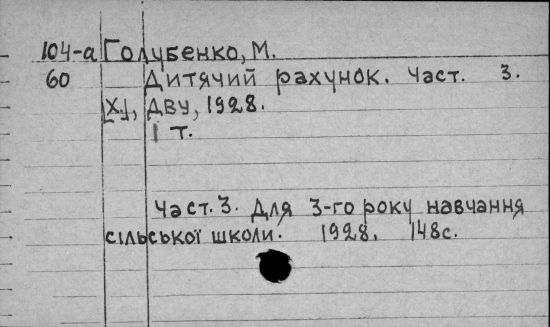 104-а Голубенко, М.
60 Дитячий рахунок. Част. 3.
[Х.], ДВУ, 1928.
1 т.
Част. 3. Для 3-го року навчання
сільської школи. 1928. 148с.